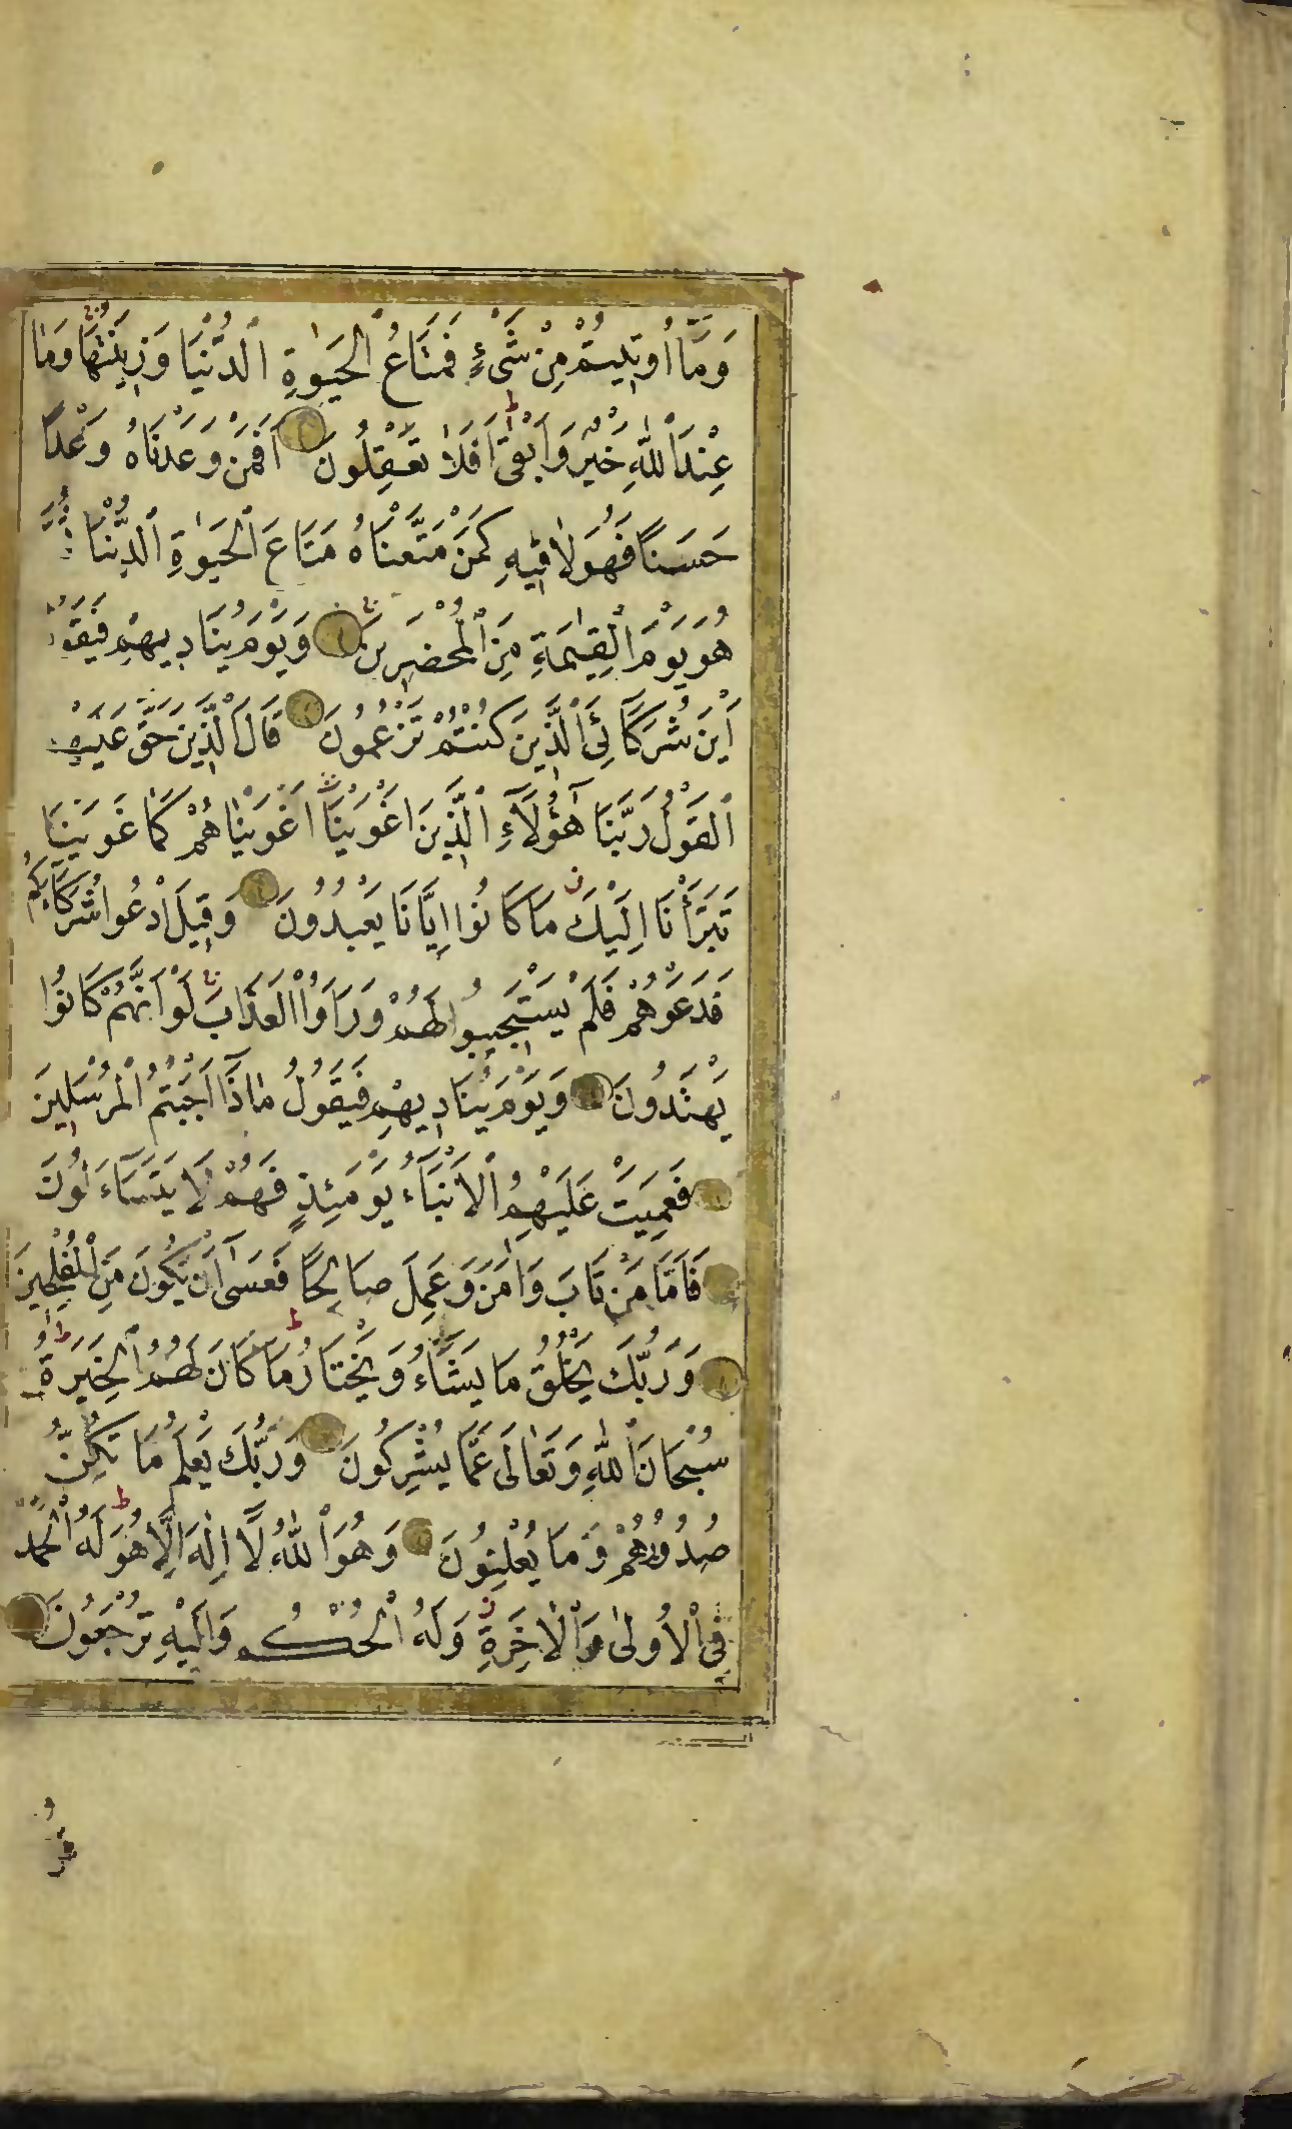 وَمَٓا اُوتٖيتُمْ مِنْ شَیْءٍ فَمَتَاعُ الْحَيٰوةِ الدُّنْيَا وَزٖينَتُهَا وَمَا
عِنْدَ اللّٰهِ خَيْرٌ وَاَبْقٰى اَفَلَا تَعْقِلُونَ اَفَمَنْ وَعَدْنَاهُ وَعْدًا
حَسَنًا فَهُوَ لَاقٖيهِ كَمَنْ مَتَّعْنَاهُ مَتَاعَ الْحَيٰوةِ الدُّنْيَا ثُمَّ
هُوَ يَوْمَ الْقِيٰمَةِ مِنَ الْمُحْضَرٖينَ وَيَوْمَ يُنَادٖيهِمْ فَيَقُولُ
اَيْنَ شُرَكَٓائِیَ الَّذٖينَ كُنْتُمْ تَزْعُمُونَ قَالَ الَّذٖينَ حَقَّ عَلَيْهِمُ
الْقَوْلُ رَبَّنَا هٰٓؤُلَٓاءِ الَّذٖينَ اَغْوَيْنَا اَغْوَيْنَاهُمْ كَمَا غَوَيْنَا
تَبَرَّأْنَا اِلَيْكَ مَا كَانُوا اِيَّانَا يَعْبُدُونَ وَقٖيلَ ادْعُوا شُرَكَٓاءَكُمْ
فَدَعَوْهُمْ فَلَمْ يَسْتَجٖيبُوا لَهُمْ وَرَاَوُا الْعَذَابَ لَوْ اَنَّهُمْ كَانُوا
يَهْتَدُونَ وَيَوْمَ يُنَادٖيهِمْ فَيَقُولُ مَاذَٓا اَجَبْتُمُ الْمُرْسَلٖينَ
فَعَمِيَتْ عَلَيْهِمُ الْاَنْبَٓاءُ يَوْمَئِذٍ فَهُمْ لَا يَتَسَٓاءَلُونَ
فَاَمَّا مَنْ تَابَ وَاٰمَنَ وَعَمِلَ صَالِحًا فَعَسٰٓى اَنْ يَكُونَ مِنَ الْمُفْلِحٖينَ
وَرَبُّكَ يَخْلُقُ مَا يَشَٓاءُ وَيَخْتَارُ مَا كَانَ لَهُمُ الْخِيَرَةُ
سُبْحَانَ اللّٰهِ وَتَعَالٰى عَمَّا يُشْرِكُونَ وَرَبُّكَ يَعْلَمُ مَا تُكِنُّ
صُدُورُهُمْ وَمَا يُعْلِنُونَ وَهُوَ اللّٰهُ لَٓا اِلٰهَ اِلَّا هُوَ لَهُ الْحَمْدُ
فِی الْاُولٰى وَالْاٰخِرَةِ وَلَهُ الْحُكْمُ وَاِلَيْهِ تُرْجَعُونَ